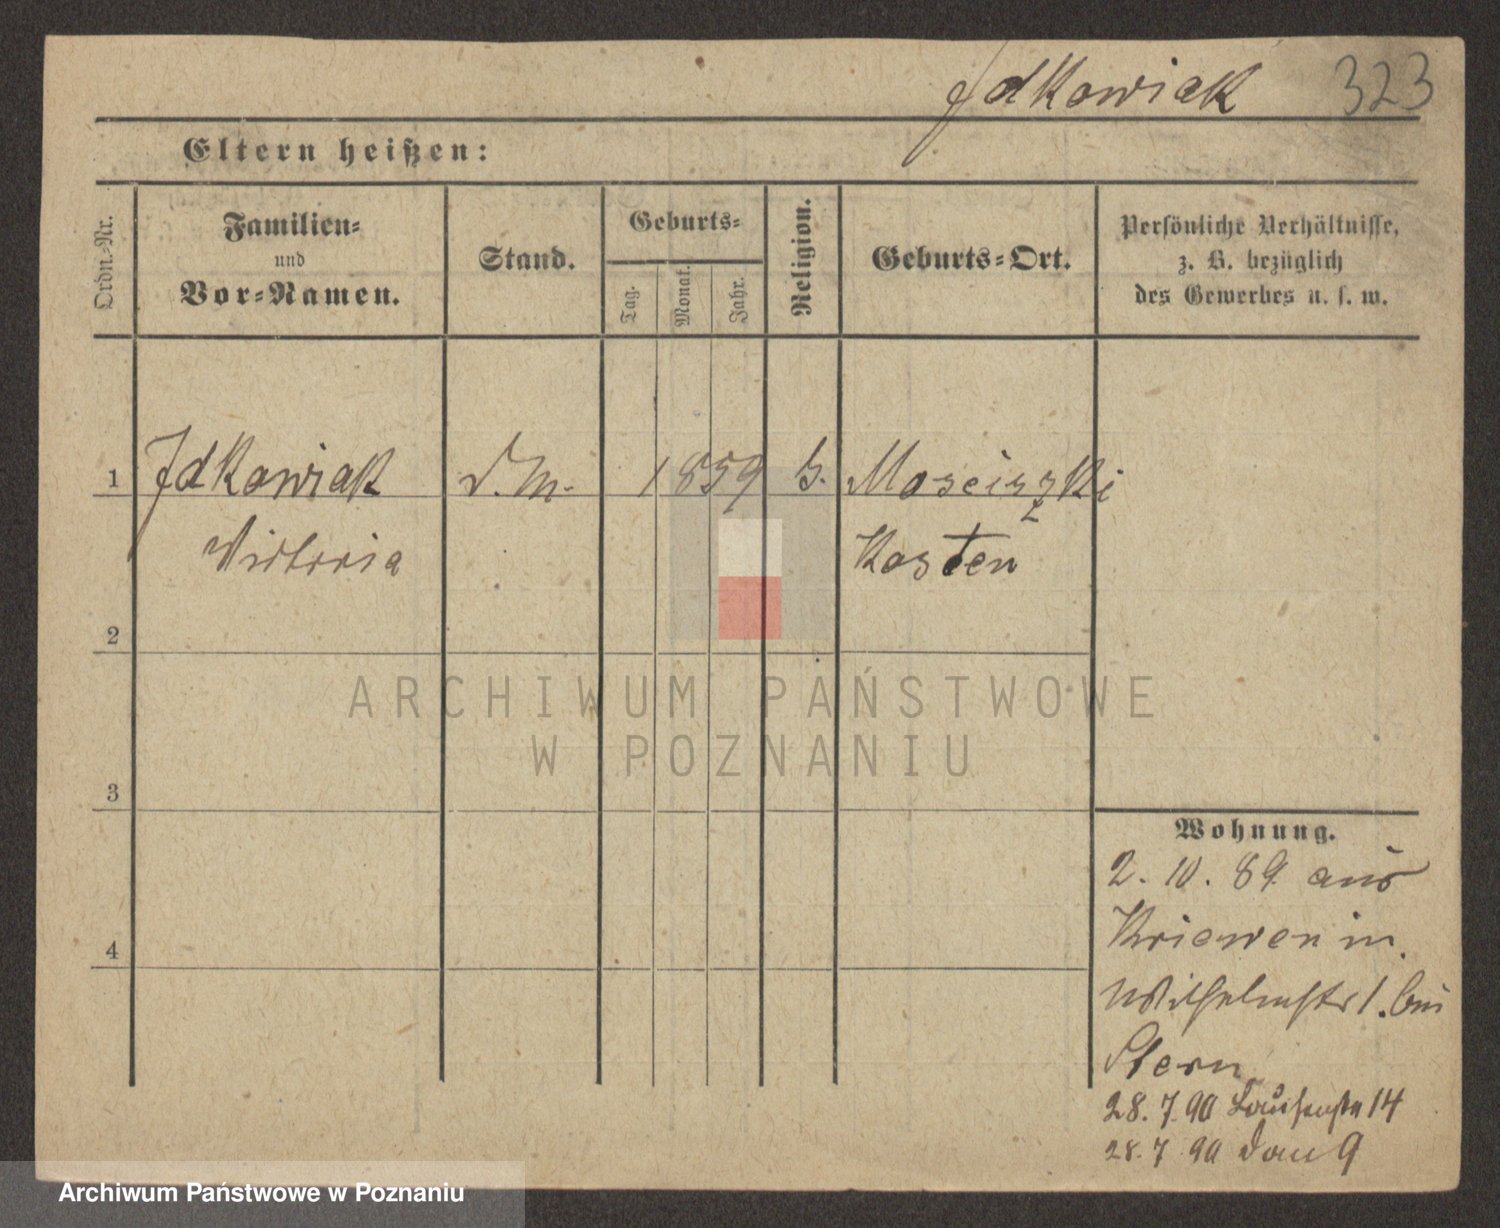 Jdkowiak 323
Eltern heißen:
Ordn.-Nr.
Familien-
und
Vor-Namen.
Stand.
Geburts-
Tag.
Monat.
Jahr.
Religion.
Geburts-Ort.
Persönliche Verhältnisse,
z. B. bezüglich
des Gewerbes u. s. w.
1 Jdkowiak D. M. 1859 k. Mosciszki
Victoria Kosten
2
ARCHIWUM PAŃSTWOWE
W POZNANIU
3
4
Wohnung.
2. 10. 89 aus
Kriewen in
Wilhelmstr 1. bei
Stern
28. 7. 90 14
28. 7. 90 9
Archiwum Państwowe w Poznaniu